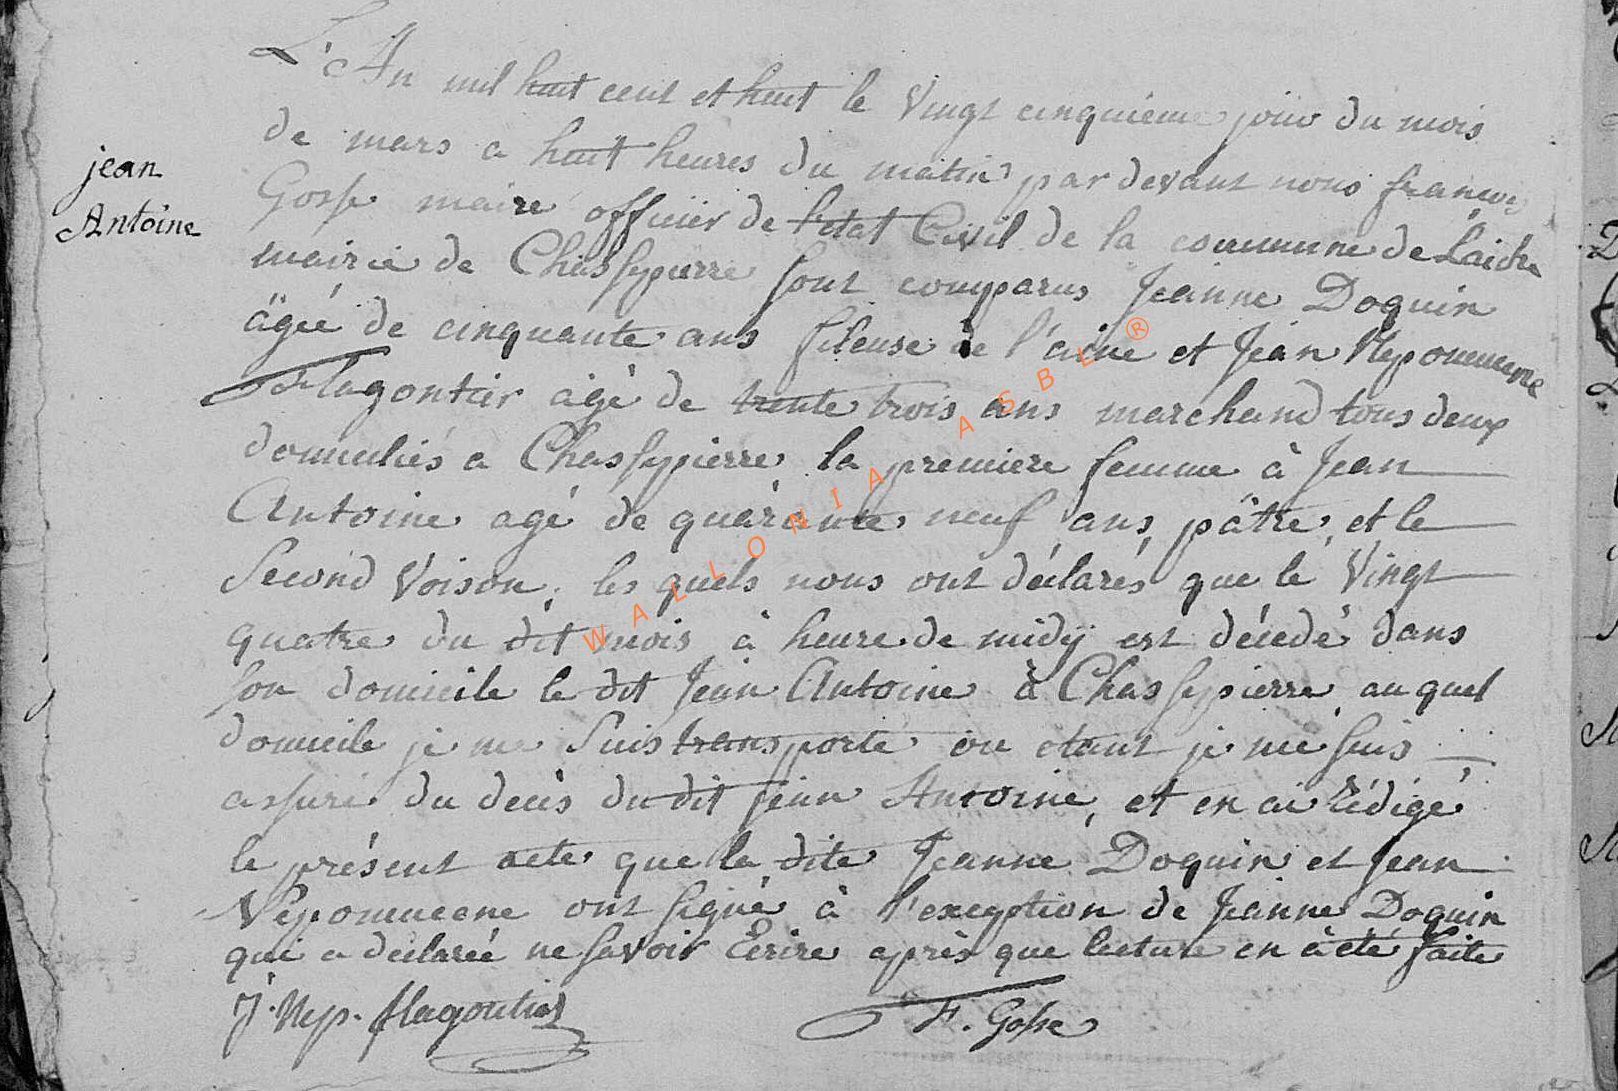 L'An mil huit cent et huit le Vingt cinquieme jour du mois
de mars a huit heures du matin par devant nous francois
jean
Antoine
Gosse maire officier de l'etat Civil de la commune de Laiche
mairie de Chassepierre sont comparus Jeanne Doquin
âgée de cinquante ans fileuse de l'aine et Jean Nepomucene
Flagontier agé de trente trois ans marchand tous deux
domiciliés a Chassepierre la premiere femme à Jean
Antoine agé de quarante neuf ans, pâtre, et le
Second Voison, les quels nous ont déclarés que le Vingt
quatre du dit mois à heure de midÿ est décedé dans
son domicile le dit Jean Antoine à Chassepierre au quel
domicile je me suis transporté ou etant je me suis
assuré du decès du dit jean Antoine, et en ai rédigé
le présent acte que la dite Jeanne Doquin et Jean
Nepomucene ont signé à l'exception de Jeanne Doquin
qui a declareé ne savoir Ecrire après que lecture en à eté faite
J. Nep. flagontier
F. Gosse
WALLONIA ASBL ®